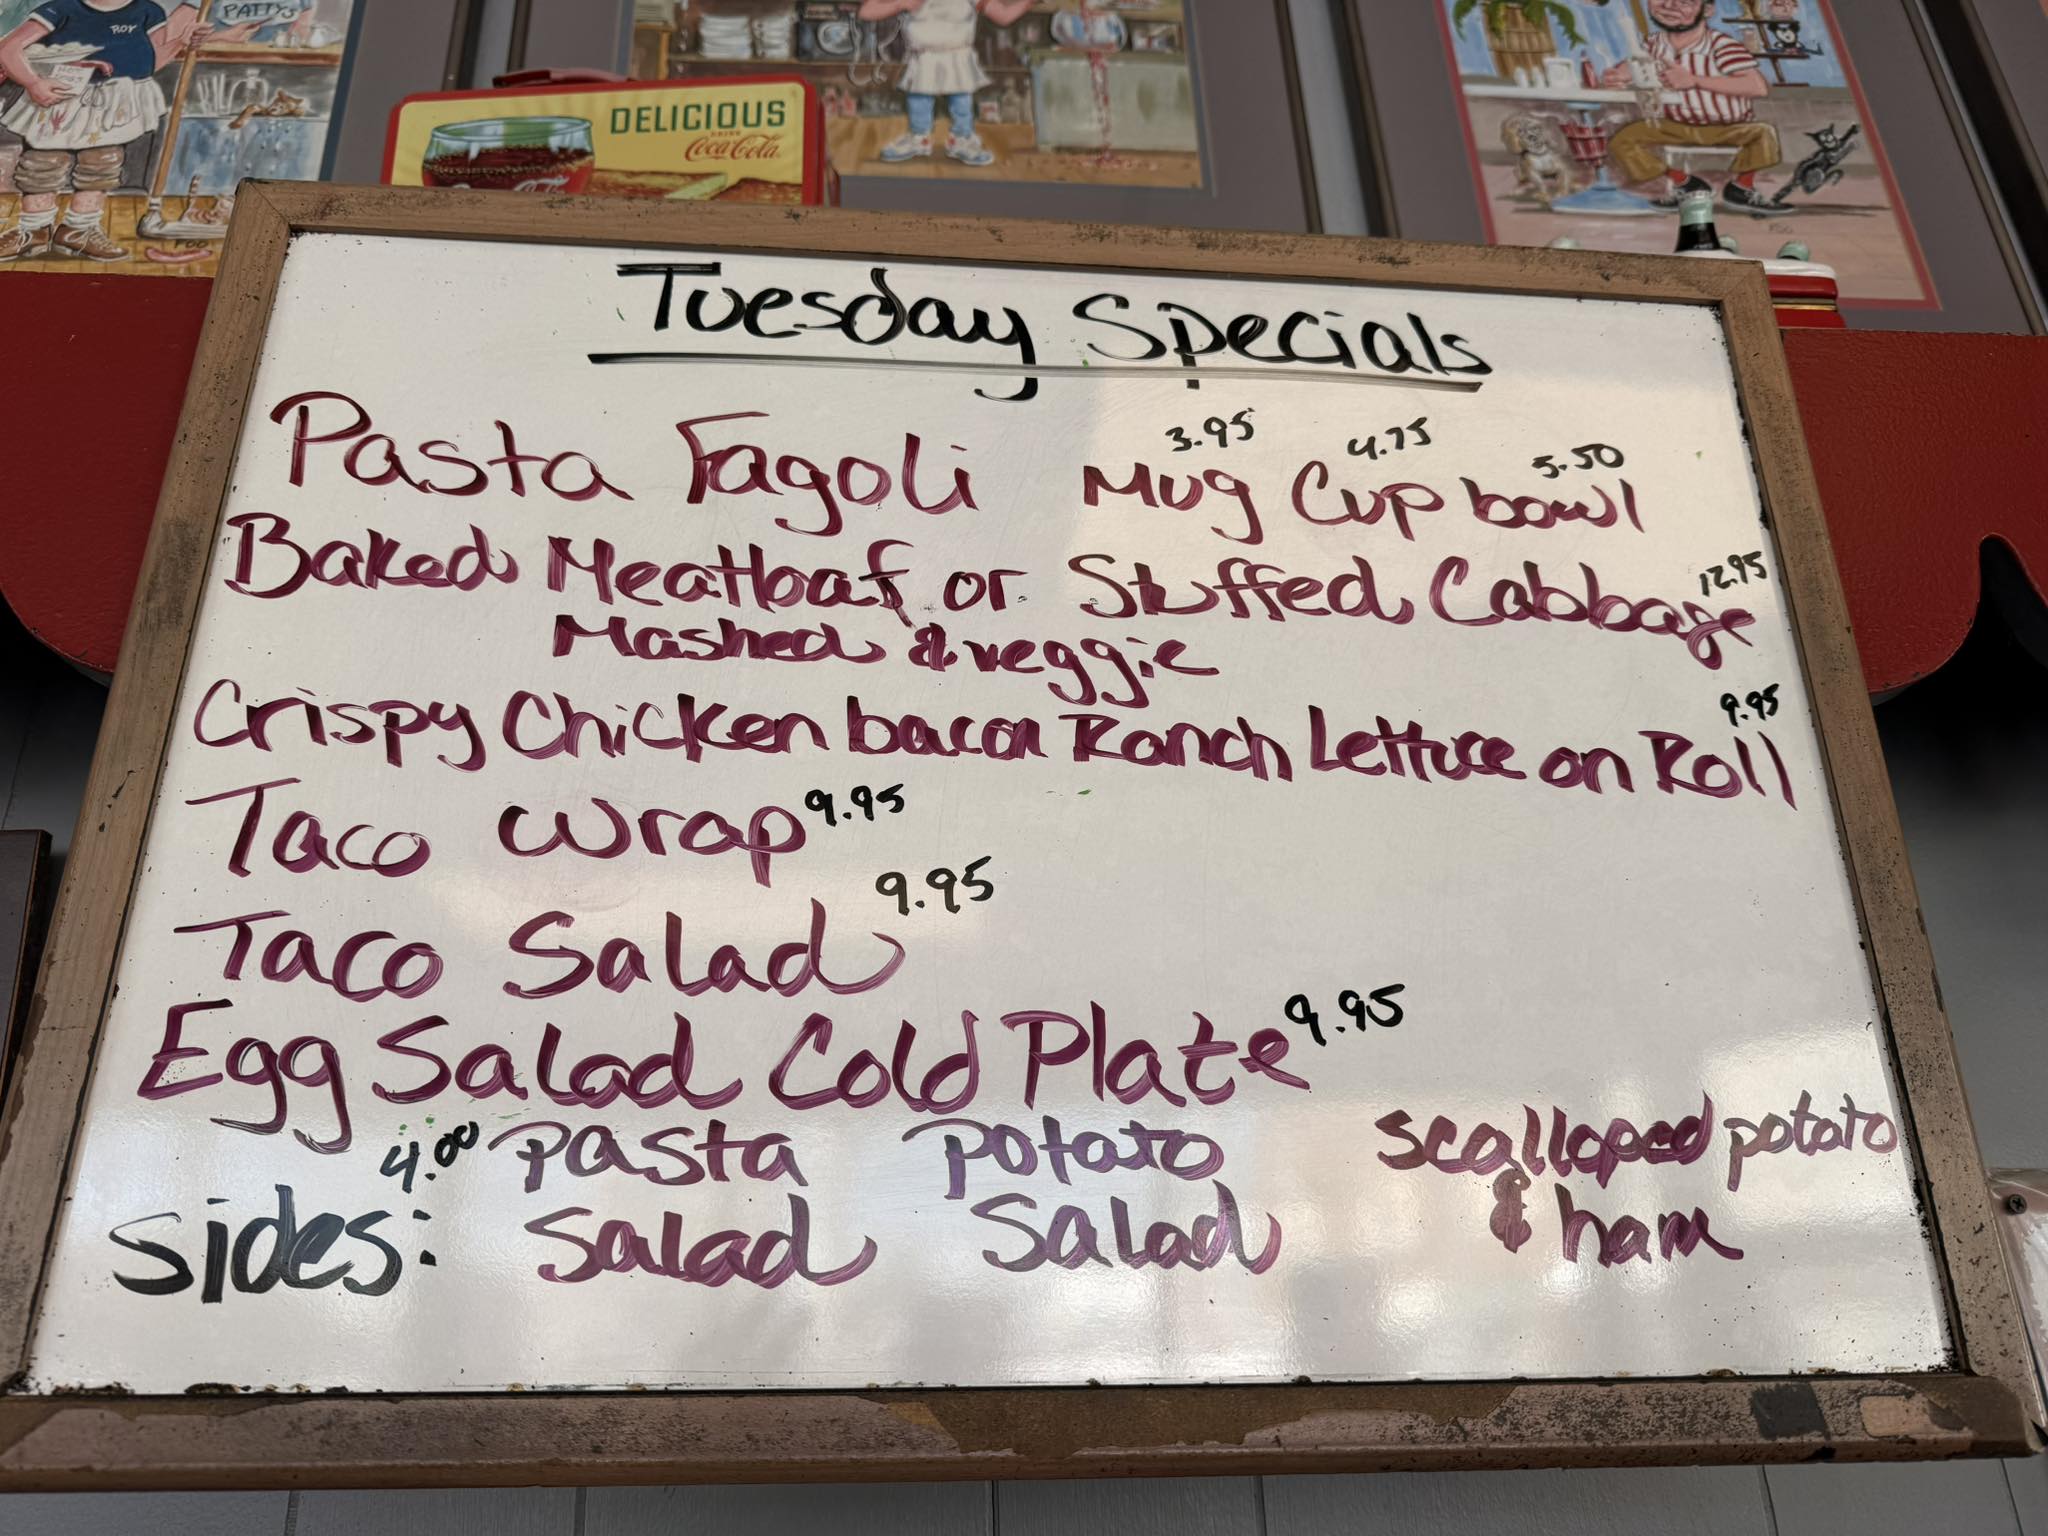 ROY
PATTY'S
DELICIOUS
DRINK
Coca-Cola
Coca-Cola
FOO
Tuesday Specials
3.95 4.75 5.50
Pasta Fagoli Mug Cup bowl
12.95
Baked Meatloaf or Stuffed Cabbage
Mashed & veggie
9.95
Crispy Chicken bacon Ranch Lettuce on Roll
Taco Wrap 9.95
Taco Salad 9.95
Egg Salad Cold Plate 9.95
4.00 pasta potato scalloped potato
sides: Salad Salad & ham